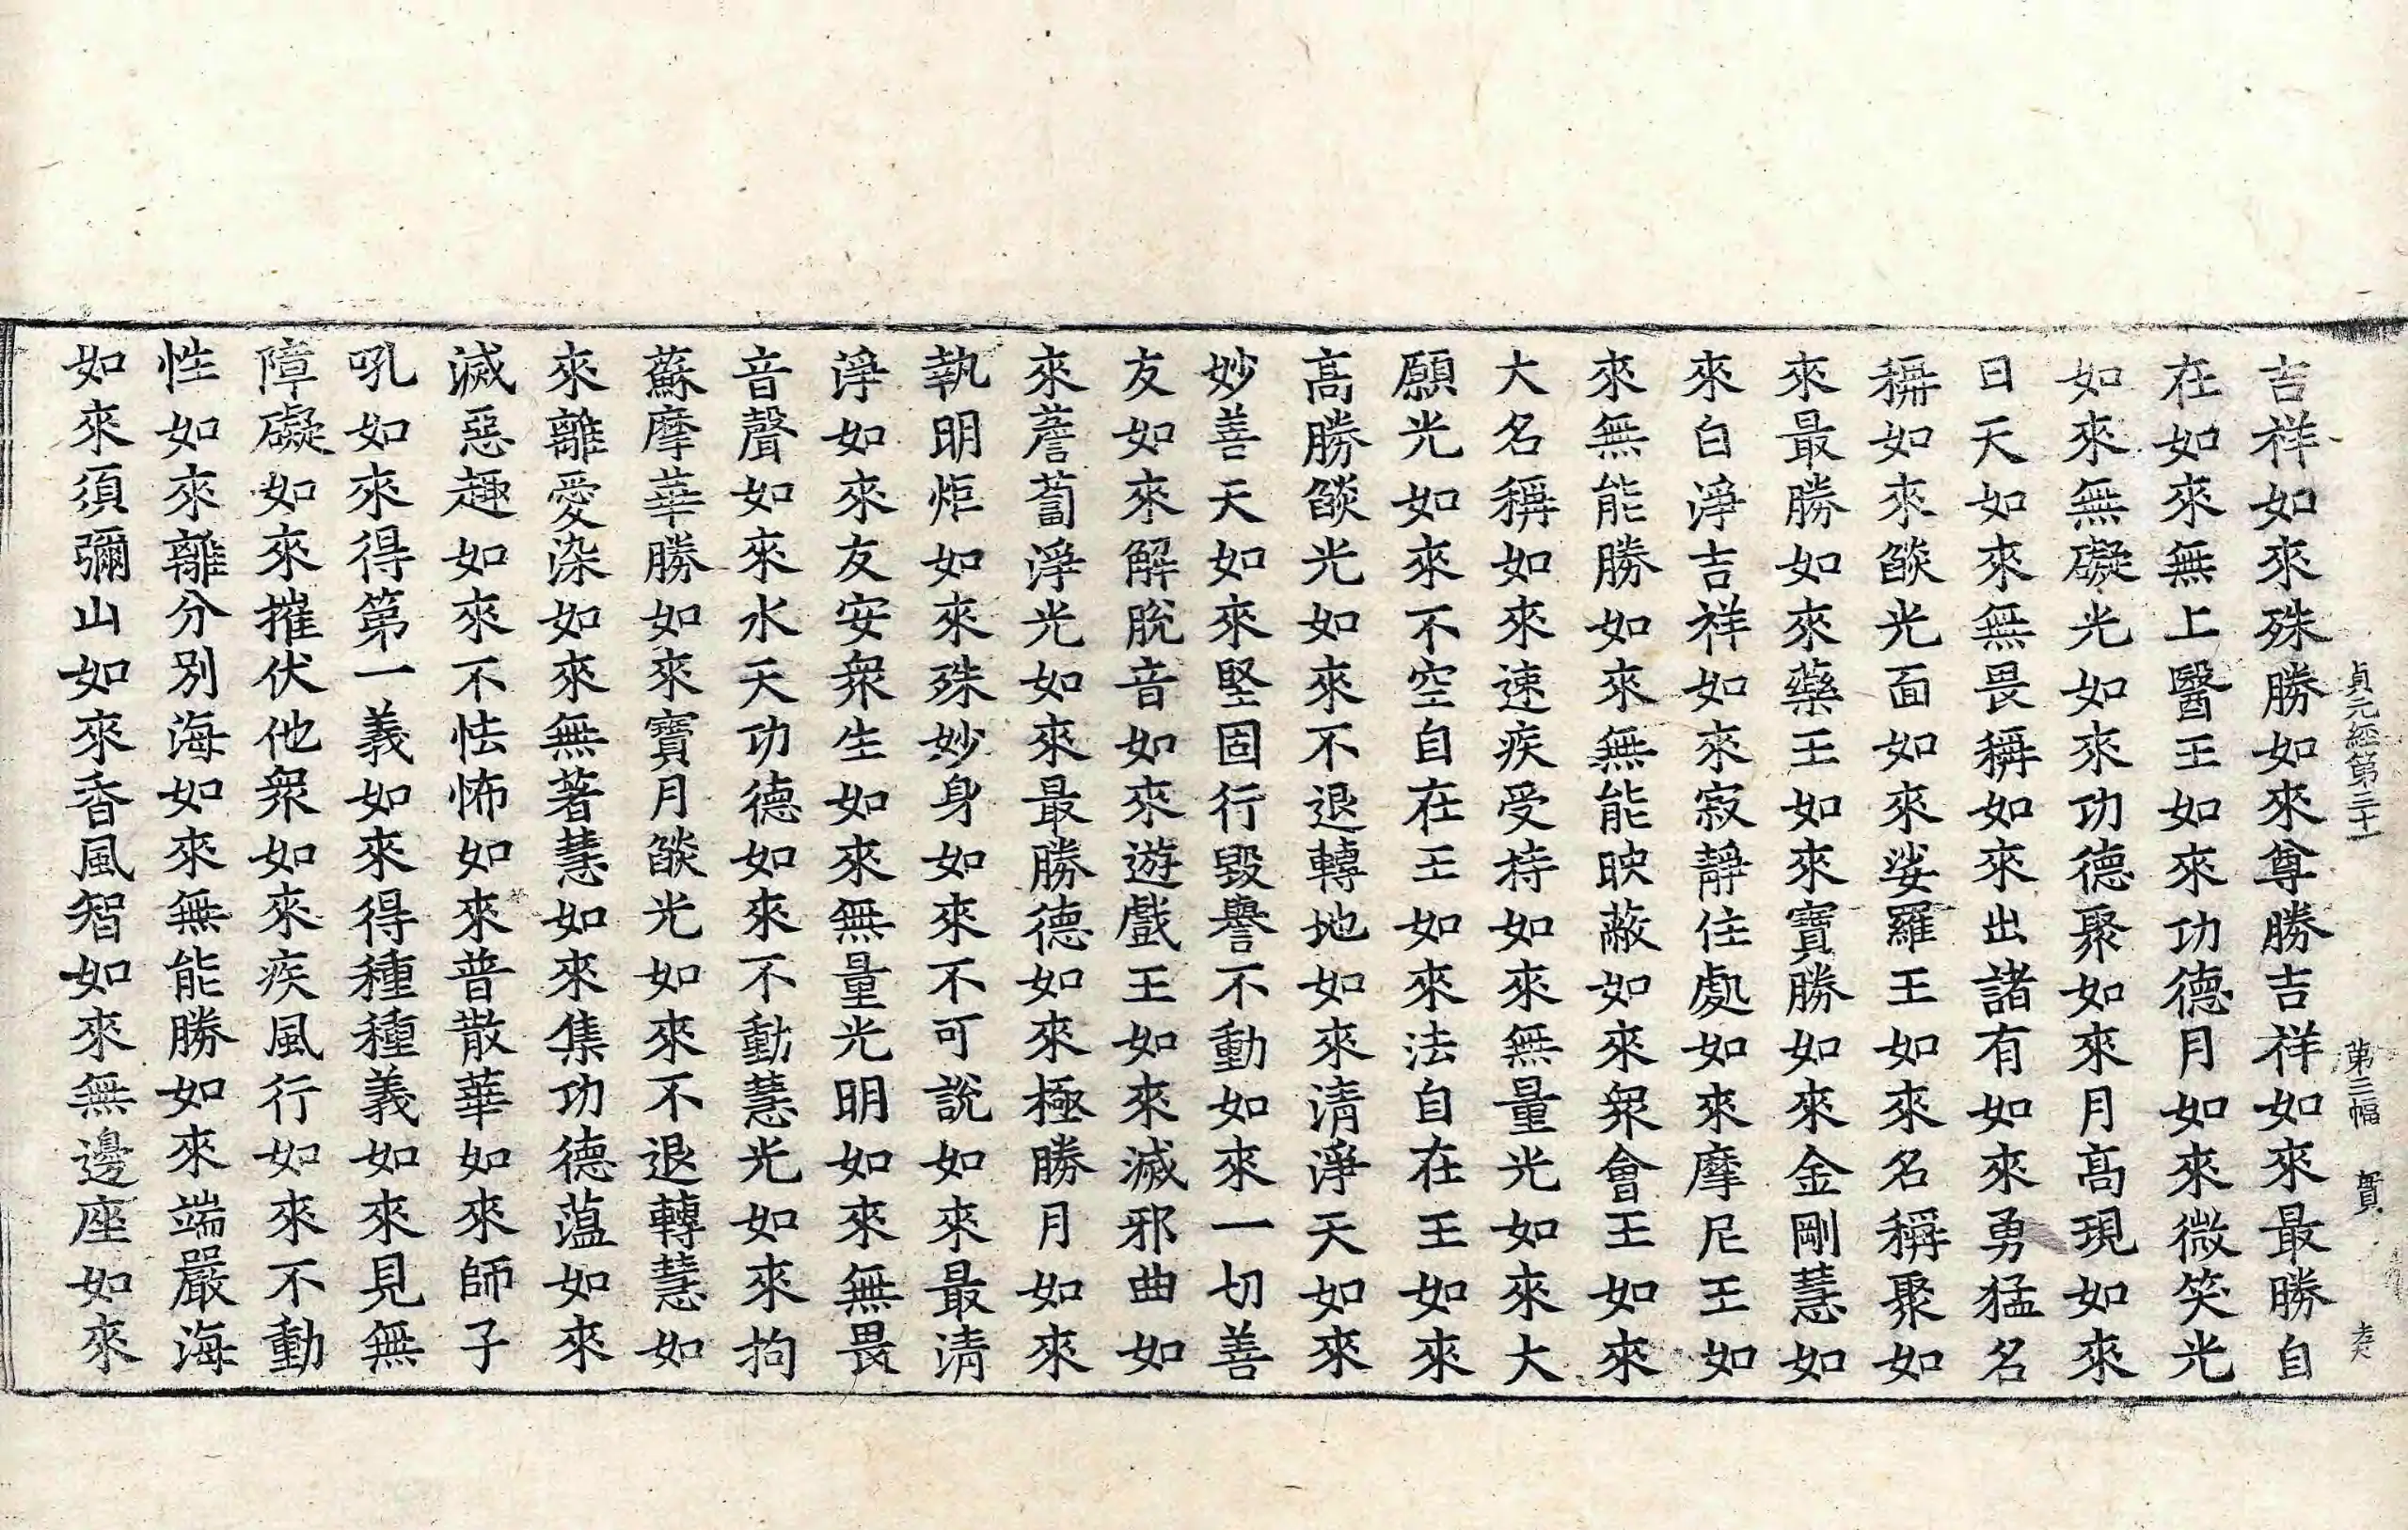 貞元經第三十一 第三幅 賀
吉祥如來殊勝如來尊勝吉祥如來最勝自
在如來無上醫王如來功德月如來微笑光
如來無礙光如來功德聚如來月高現如來
日天如來無畏稱如來出諸有如來勇猛名
稱如來燄光面如來娑羅王如來名稱聚如
來最勝如來藥王如來寶勝如來金剛慧如
來白淨吉祥如來寂靜住處如來摩尼王如
來無能勝如來無能映蔽如來衆會王如來
大名稱如來速疾受持如來無量光如來大
願光如來不空自在王如來法自在王如來
高勝燄光如來不退轉地如來清淨天如來
妙善天如來堅固行毀譽不動如來一切善
友如來解脫音如來遊戲王如來滅邪曲如
來薝蔔淨光如來最勝德如來極勝月如來
執明炬如來殊妙身如來不可說如來最清
淨如來友安衆生如來無量光明如來無畏
音聲如來水天功德如來不動慧光如來拘
蘇摩華勝如來寶月燄光如來不退轉慧如
來離愛染如來無著慧如來集功德藴如來
滅惡趣如來不怯怖如來普散華如來師子
吼如來得第一義如來得種種義如來見無
障礙如來摧伏他衆如來疾風行如來不動
性如來離分別海如來無能勝如來端嚴海
如來須彌山如來香風智如來無邊座如來